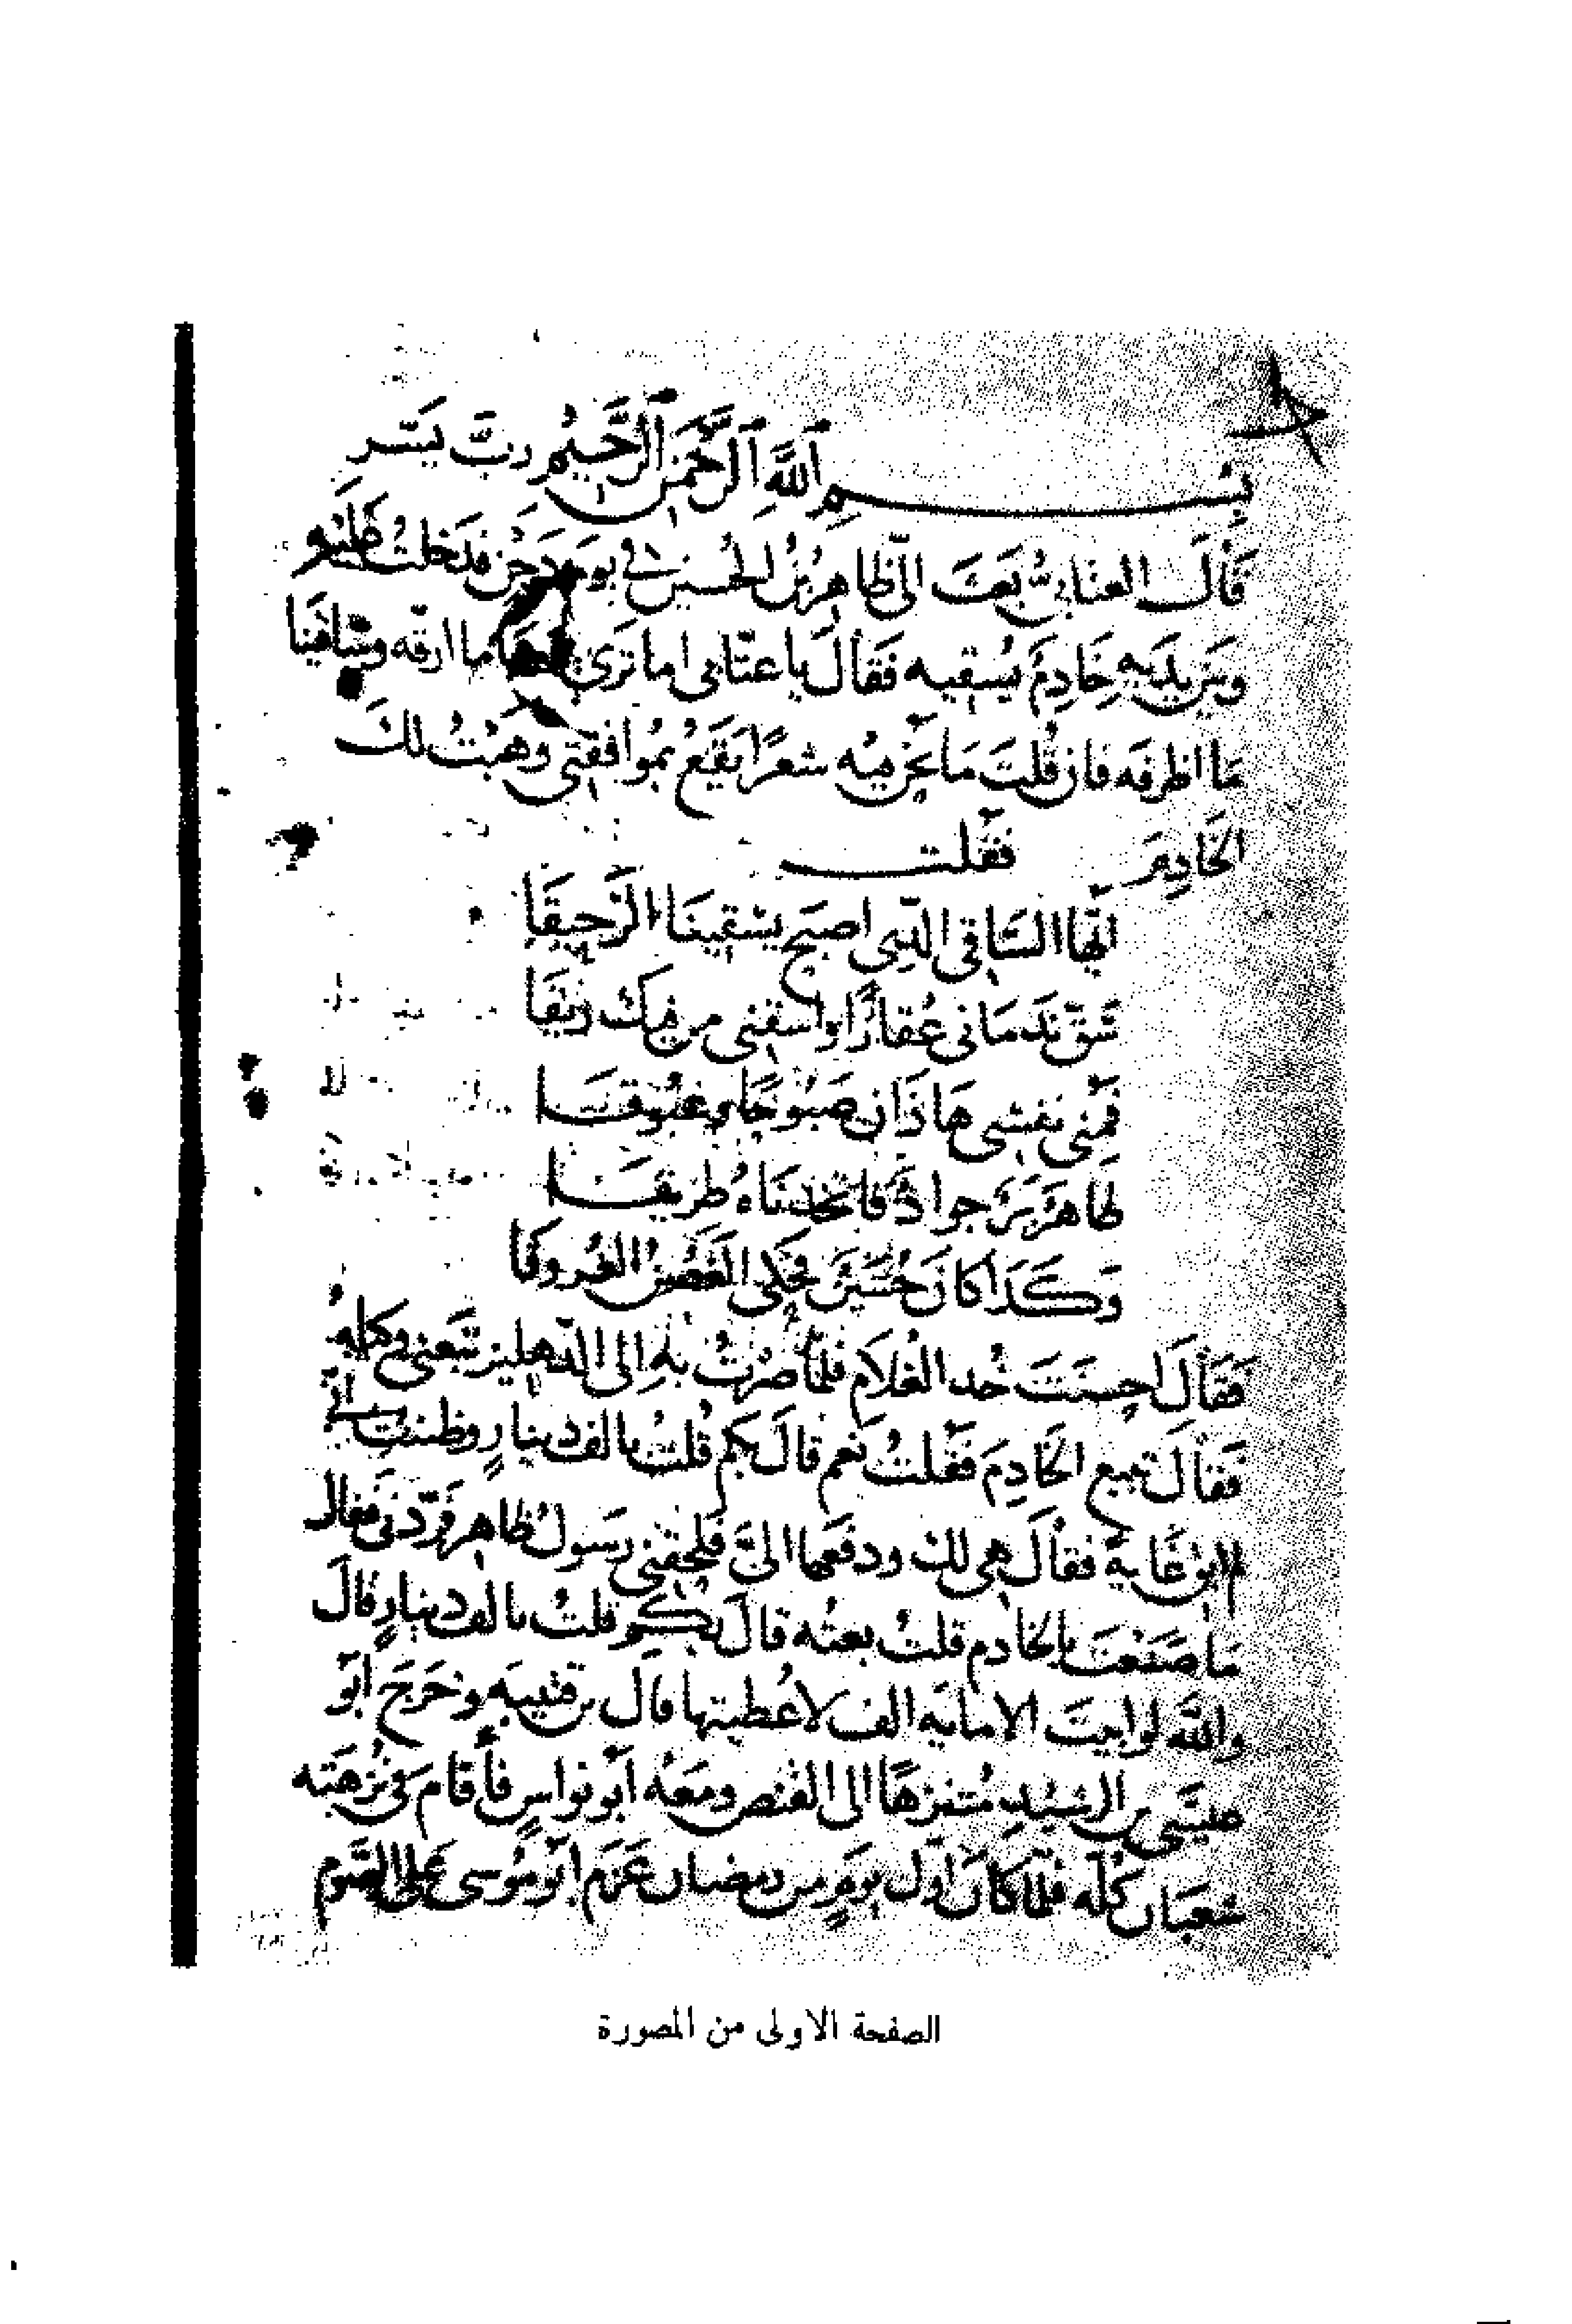 بسم اللهِ الرَّحمَنِ الرَّحيمِ ربّ يَسّر
قَالَ العتابيُّ بَعَثَ اليّ طاهرُ بنُ الحُسين في يوم دَجن فدَخلتُ عَليه
وبَين يدَيه خَادِمٌ يُسقيه فَقَالَ يا عتّابي اما تَرَى ما ارقّه وشاقينا
مَا اظرفه فان قُلتَ مَا نحن فيه شعرًا يَقَعُ بمُوافقتي وهبتُ لكَ
الخَادِمَ فَقُلت
ايّها السّاقي الّذي اصبَح يسْقينَا الرَّحيقَا
سَقّ نَدمَاني عُقارًا واسقني من فيكَ ريقَا
فمُنى نفسي هَاذان صَبُوحًا وغبُوقَا
طاهرٌ بَرٌّ جوادٌ فاتخذنَاهُ طريقَا
وكَذا كانَ حُسَينٌ فحكى الغُصنُ العُروقَا
فَقَالَ احسنتَ خُد الغُلاَم فلمّا صرتُ بهِ إلى الدّهليز تبعَني وكيله
فَقالَ تبيع الخَادِمَ فَقُلتُ نَعم قالَ بكم قلتُ بالف دينارٍ وظننت انّي
فقالَ هي لك ودفَعها اليَّ فلحقني رَسولُ طاهر فردّني فقال
مَا صَنَعتَ بالخادم قلتُ بعتُه قالَ بكم قلتُ بالف دينارٍ قالَ
واللّه لو ابيتَ الا مايه الف لاعُطيتها قال بن قتيبَه وخَرَجَ ابُو
عيسَى بن الرشيدِ مُتنزهًا الى القفص ومعَهُ ابُو نواسٍ فأقام في نُزهته
شعبَان كُلّه فلمّا كانَ اوّل يومٍ من رمضان عَزم ابُو مُوسى على الصّوم
الصفحة الاولى من المصورة